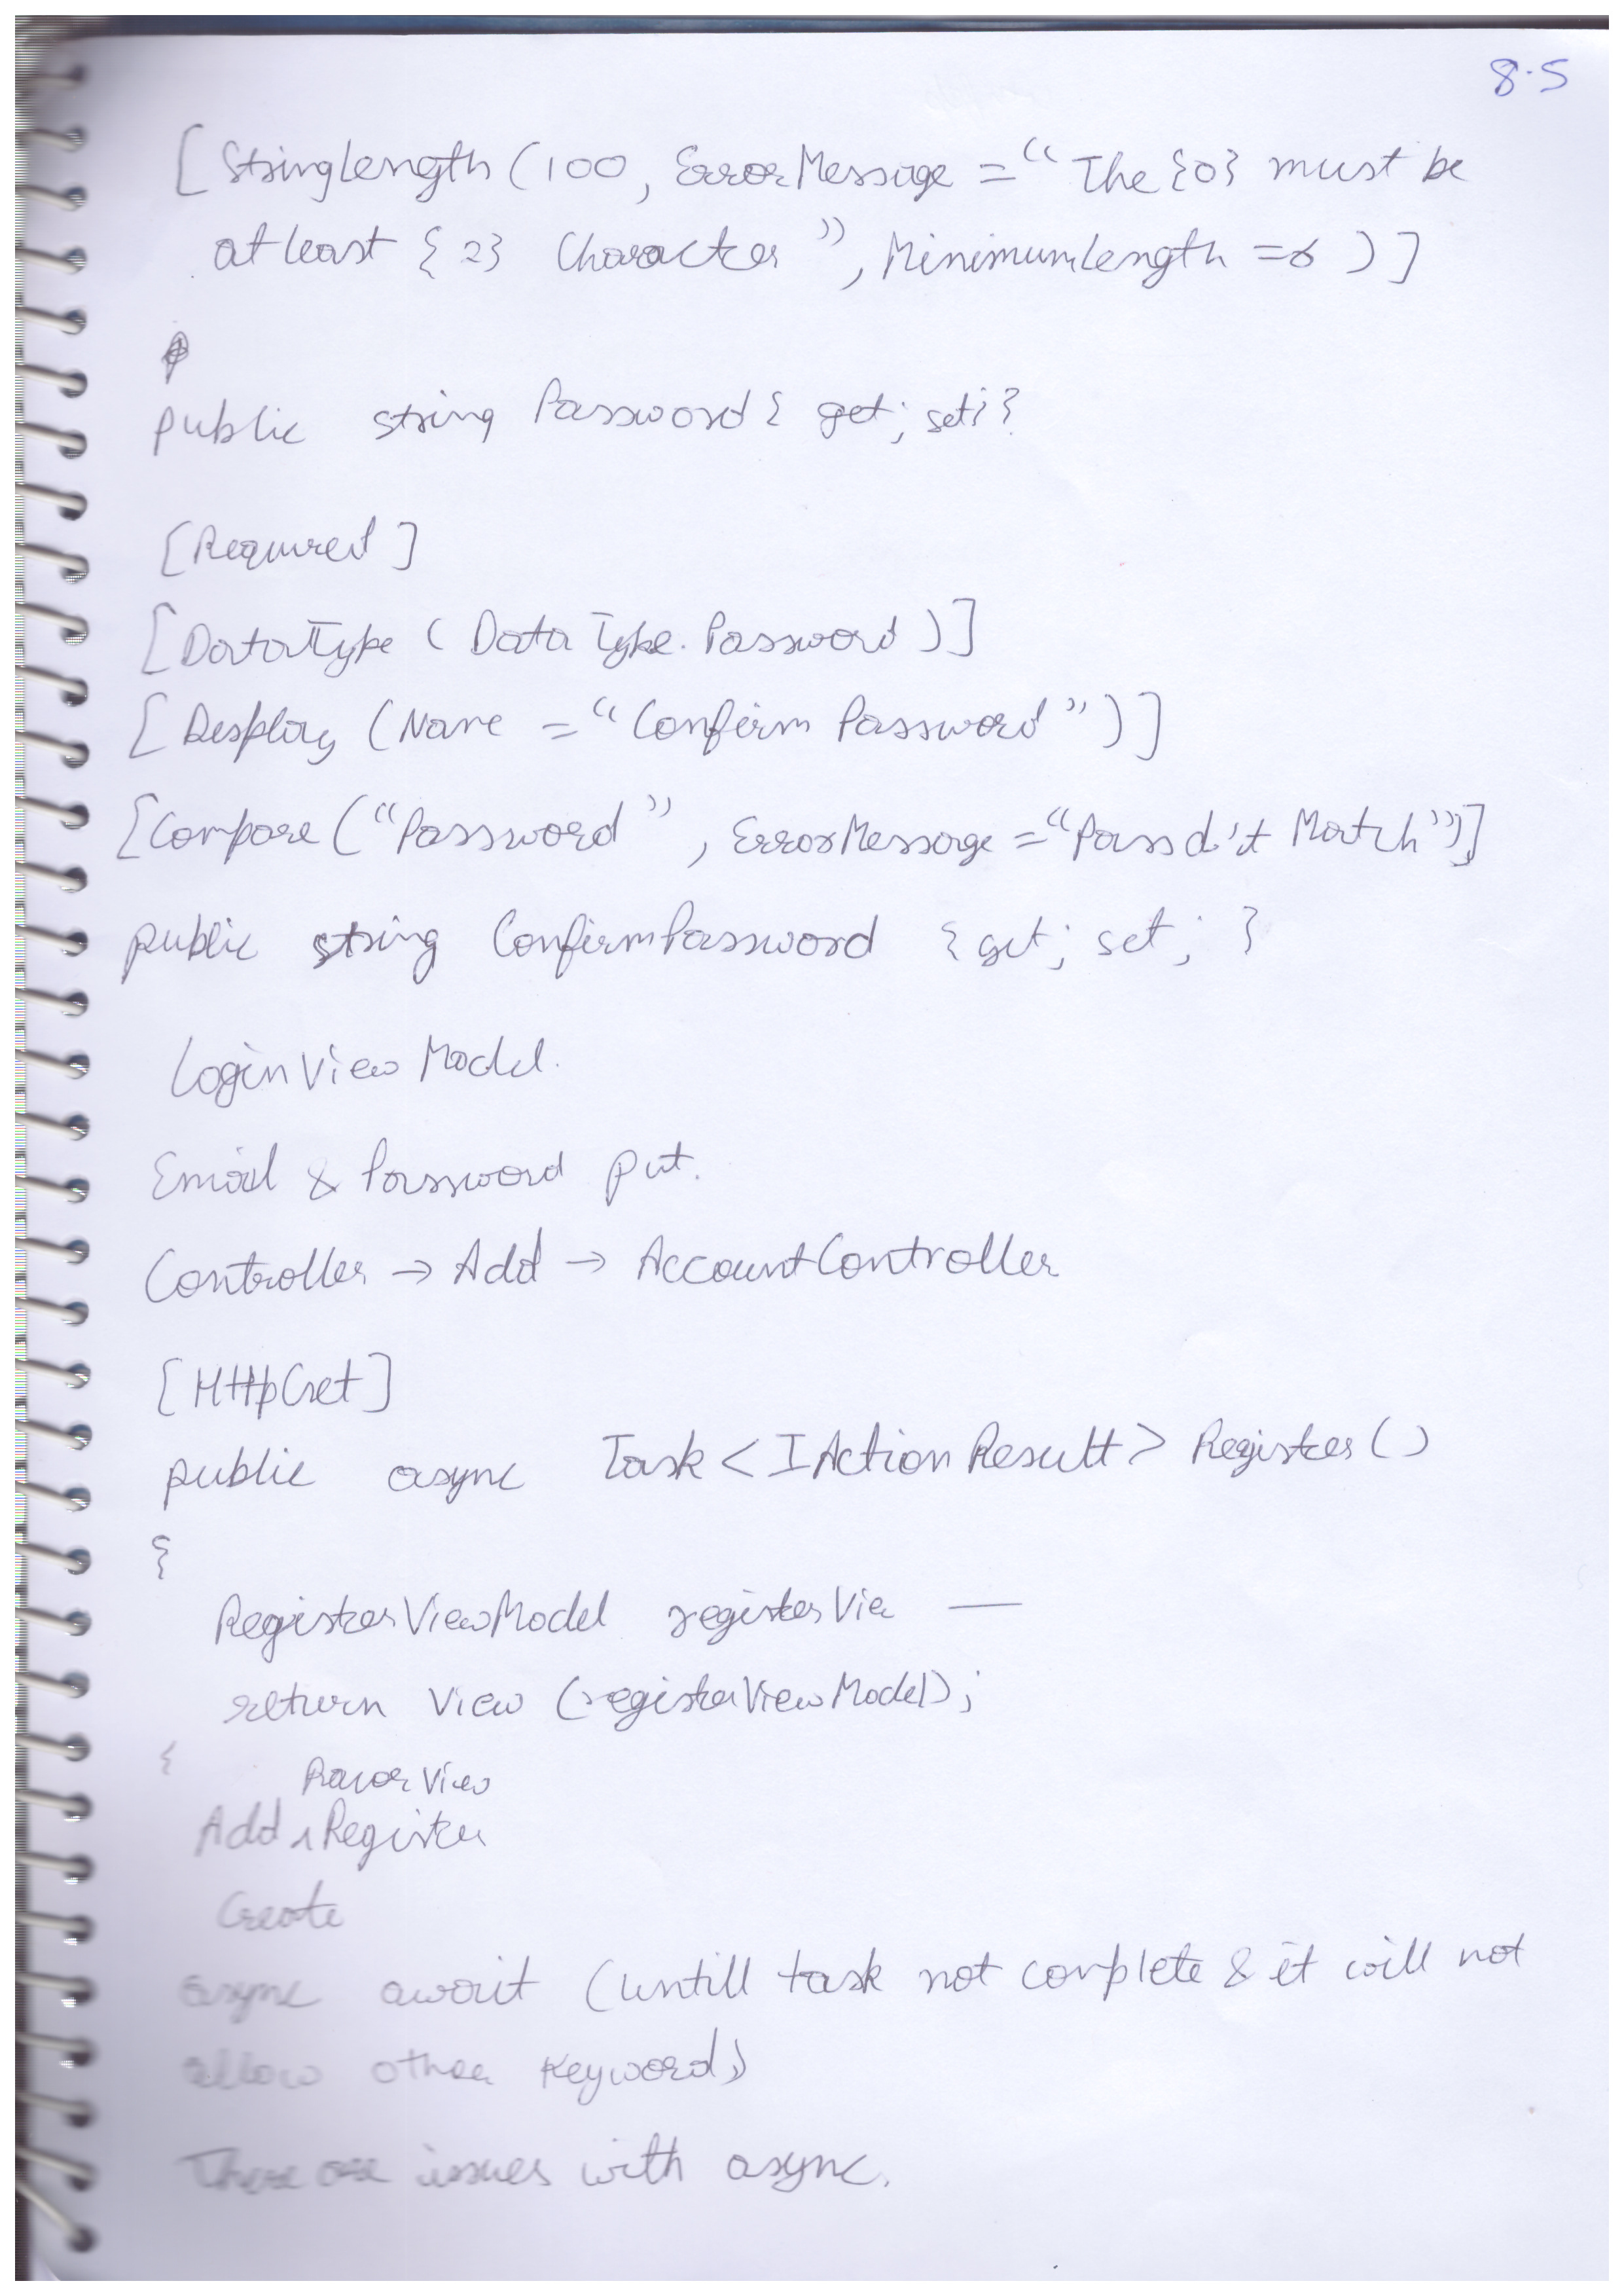 8.5
[StringLength (100, ErrorMessage = "The {0} must be
at least {2} Character", MinimumLength = 6 )]
public string Password { get; set; }
[Required]
[DataType (DataType.Password)]
[Display (Name = "Confirm Password")]
[Compare ("Password", ErrorMessage = "Pass d't Match")]
public string ConfirmPassword { get; set; }
LoginViewModel.
Email & Password put.
Controller → Add → AccountController
[HttpGet]
public async Task<IActionResult> Register()
{
RegisterViewModel registerVie —
return View (registerViewModel);
{
Razor View
Add ^ Register
Create
async await (untill task not complete & it will not
allow other keyword)
These are issues with async.